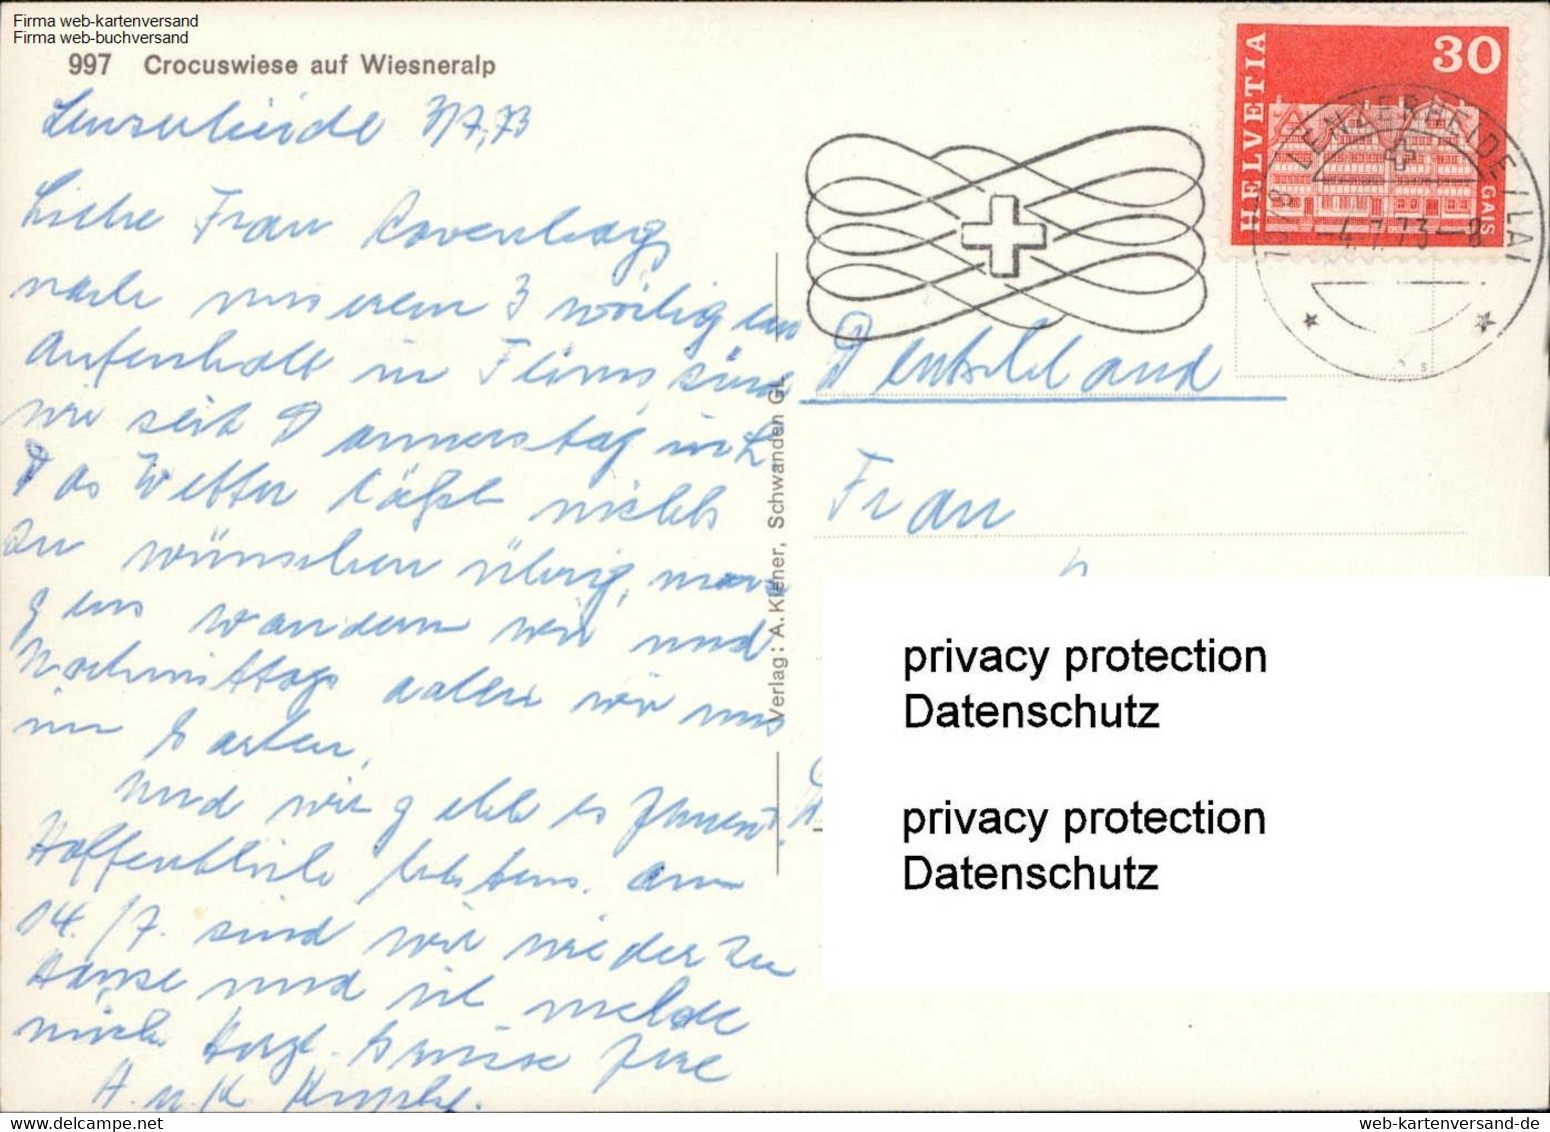 Firma web-kartenversand
Firma web-buchversand
997 Crocuswiese auf Wiesneralp
Lenzerheide 3/7.73
Liebe Frau
nach unserem 3 wöchigen
Aufenthalt in Flims sind
wir seit Donnerstag in L.
Das Wetter läßt nichts
zu wünschen übrig, mor
gens wandern wir und
Nachmittags aalen wir uns
im Garten.
Und wie geht es Ihnen?
Hoffentlich bestens. Am
14./7. sind wir wieder zu
Hause und ich melde
mich. Herzl. Grüsse Ihre
H. u. K.
Verlag: A. Kiener, Schwanden GL
HELVETIA
30
GAIS
7078 LENZERHEIDE/LAI
-4.7.73-8
Deutschland
Frau
privacy protection
Datenschutz
privacy protection
Datenschutz
web-kartenversand-de